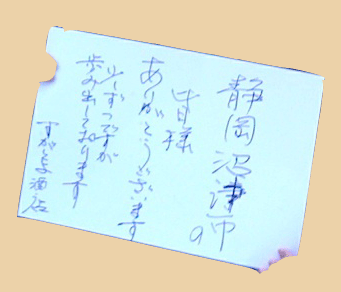 静岡沼津市の
皆様
ありがとうございます
少しずつですが
歩み出しております
すがとよ酒店